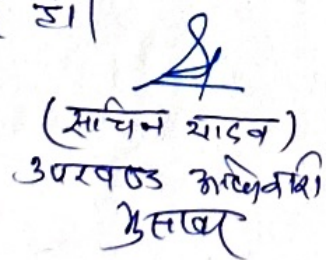 है।
(सचिन यादव)
उपखण्ड अधिकारी
भुसावर